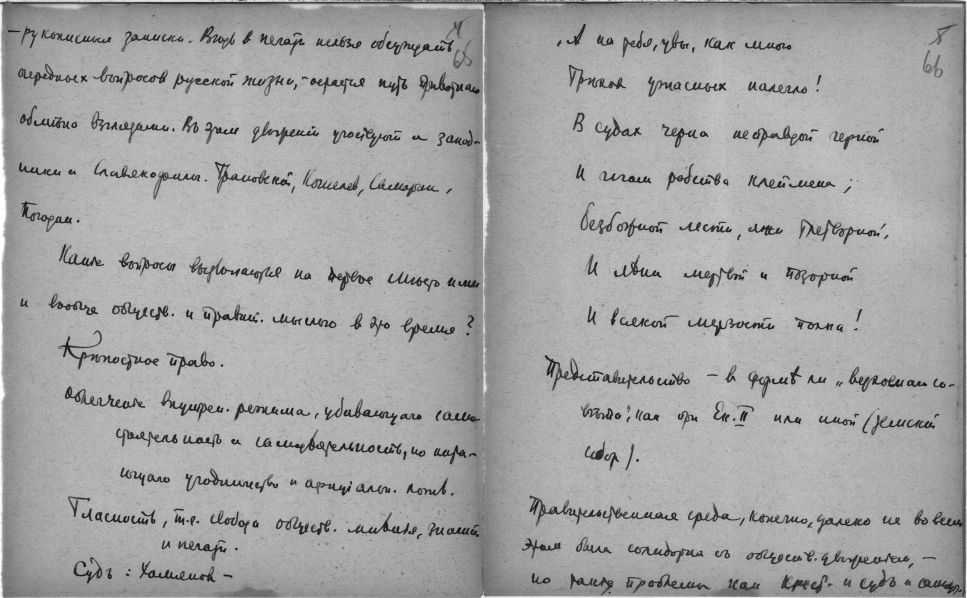 – рукописныя записки. Ведь в печати нельзя обсуждать
очередных вопросов русской жизни, – остается путь приватнаго
обмѣна взглядами. Въ этом движеніи участвуют и запад-
ники и Славянофилы. Грановскій, Кошелев, Самарин,
Погодин.
Какіе вопросы выдвигаются на первое мѣсто ими
и вообще обществ. и правит. мыслью в это время?
Крѣпостное право.
Облегченіе внутрен. режима, убивающаго само-
стоятельность и самодѣятельность, но
угодничество и офиціальн.
Гласность, т.е. свобода обществ. мнѣнія,
и печати.
Судъ: Хомяков –
4
66
„А на тебя, увы, как много
Грѣхов ужасных налегло!
В судах черна неправдой черной
И игом рабства клеймена;
Безбожной лести, лжи тлетворной,
И лѣни мертвой и позорной
И всякой мерзости полна!
5
66
Представительство – в формѣ ли „верховнаго со-
вѣта", как при Ек. II или иной (земскій
собор).
Правительственная среда, конечно, далеко не во всем
этом была солидарна съ обществ. движеніем, –
но такія проблемы как Крест. и судъ и